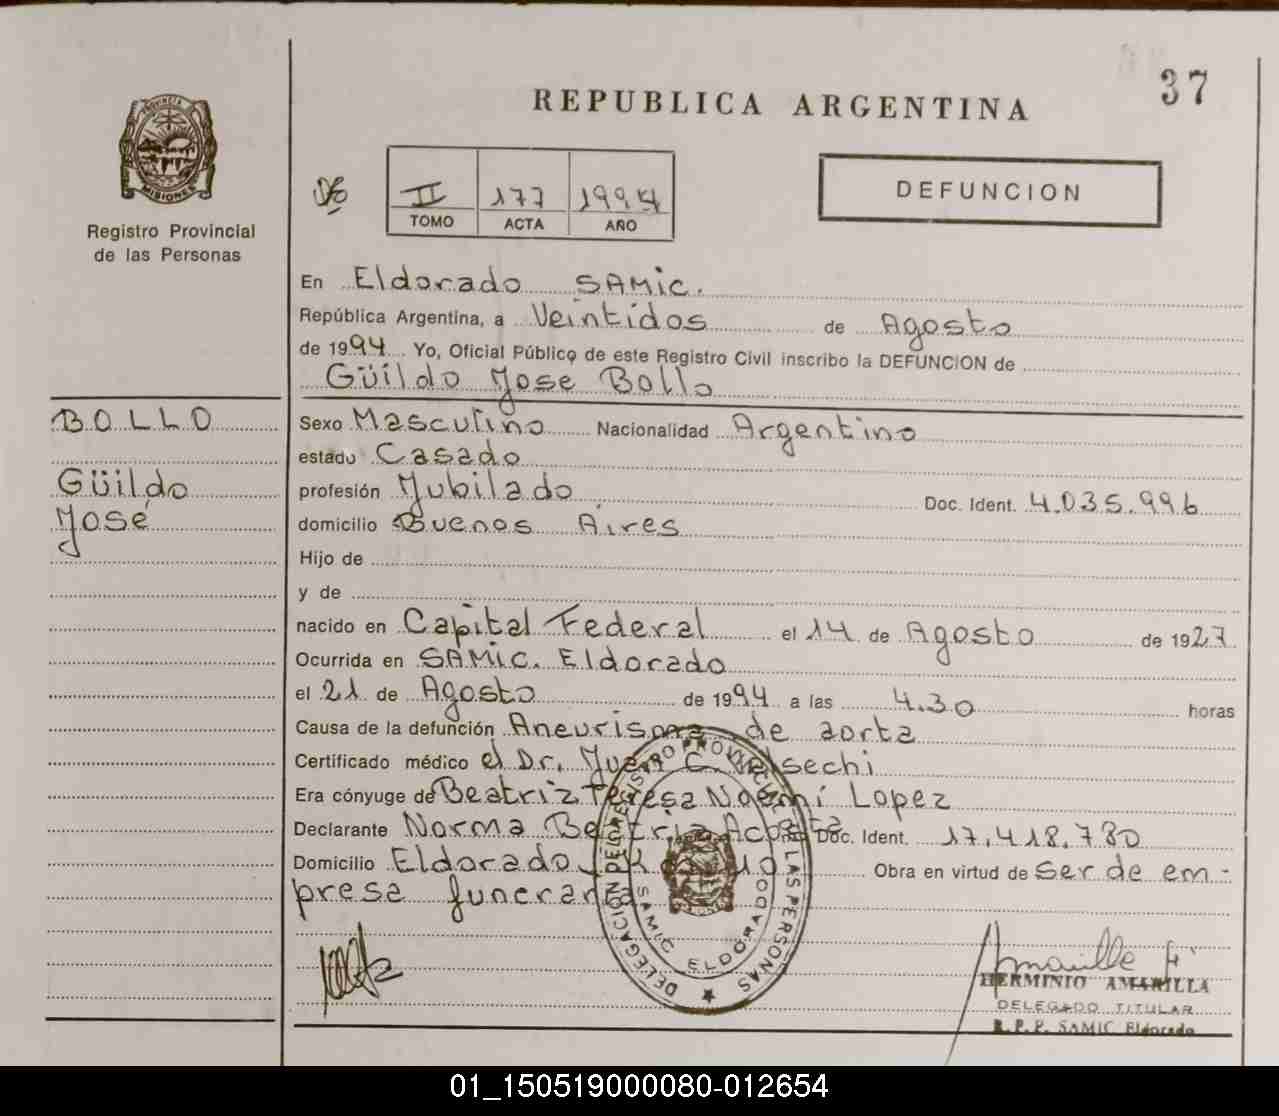 37
REPUBLICA ARGENTINA
PROVINCIA DE MISIONES
Registro Provincial
de las Personas
II 177 1994
TOMO ACTA AÑO
DEFUNCION
En Eldorado SAMic.
República Argentina, a Veintidos de Agosto
de 1994 Yo, Oficial Público de este Registro Civil inscribo la DEFUNCION de
Güildo Jose Bollo
BOLLO
Güildo
José
Sexo Masculino Nacionalidad Argentino
estado Casado
profesión Jubilado Doc. Ident. 4.035.996
domicilio Buenos Aires
Hijo de
y de
nacido en Capital Federal el 14 de Agosto de 1927
Ocurrida en SAMic. Eldorado
el 21 de Agosto de 1994 a las 4.30 horas
Causa de la defunción Aneurisma de aorta
Certificado médico el Dr. Juan C. sechi
Era cónyuge de Beatriz Teresa Noemí Lopez
Declarante Norma Beatriz Acosta Doc. Ident. 17.418.780
Domicilio Eldorado Obra en virtud de Ser de em-
presa funeraria
DELEGACION DEL REGISTRO PROVINCIAL DE LAS PERSONAS
SAMIC ELDORADO
HERMINIO AMARILLA
DELEGADO TITULAR
R.P.P. SAMIC Eldorado
01_150519000080-012654